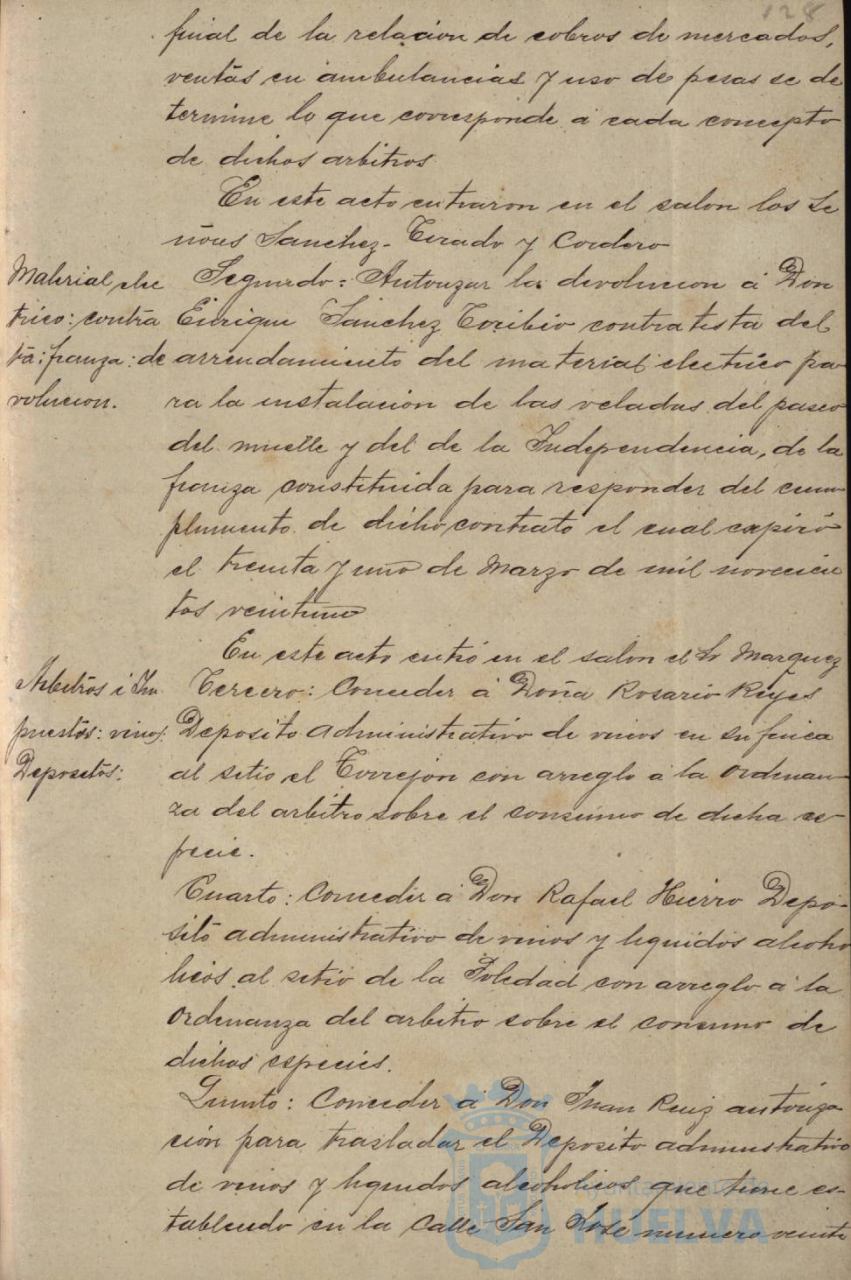 128
final de la relacion de cobros de mercados,
ventas en ambulancias y uso de pesas se de
termine lo que corresponde á cada concepto
de dichos arbitros
En este acto entraron en el salon los Se
ñores Sanchez-Tirado y Cordero
Material elec
trico: contra
ta: fianza: de
volucion.
Segundo: Autorizar la devolucion á Don
Enrique Sanchez Toribio contratista del
arrendamiento del material electrico pa-
ra la instalacion de las veladas del paseo
del muelle y del de la Independencia, de la
fianza constituida para responder del cum-
plimiento de dicho contrato el cual expiró
el treinta y uno de Marzo de mil novecien
tos veintiuno
En este acto entró en el salon el Sr Marquez
Arbitros é Im
puestos: vinos:
Depositos:
Tercero: Conceder á Doña Rosario Reyes
Deposito administrativo de vinos en su finca
al sitio el Torrejon con arreglo á la Ordenan-
za del arbitro sobre el consumo de dicha es-
pecie.
Cuarto: Conceder á Don Rafael Hierro Depo-
sito administrativo de vinos y liquidos alcoho
licos al sitio de la Soledad con arreglo á la
Ordenanza del arbitrio sobre el consumo de
dichas especies.
Quinto: Conceder á Don Juan Ruiz autoriza-
cion para trasladar el Deposito administrativo
de vinos y liquidos alcoholicos que tiene es-
tablecido en la Calle San José numero veinte
Ayuntamiento de
HUELVA